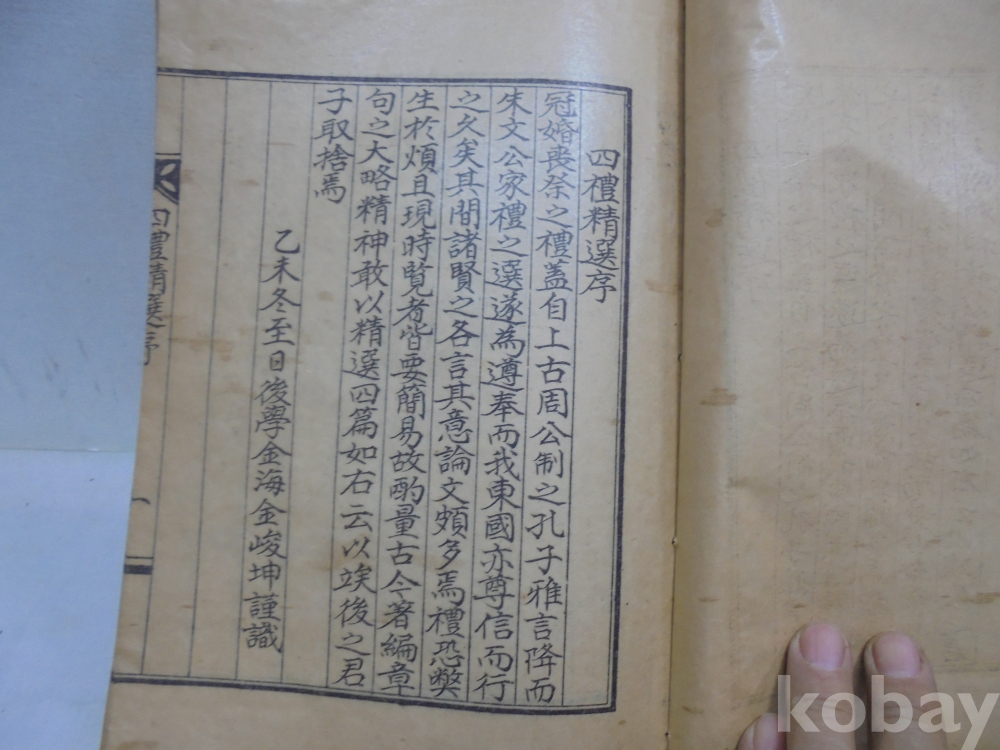 四禮精選序
冠婚喪祭之禮盖自上古周公制之孔子雅言降而
朱文公家禮之選遂為遵奉而我東國亦尊信而行
之久矣其間諸賢之各言其意論文頗多焉禮恐弊
生於煩且現時覽者皆要簡易故酌量古今著編章
句之大略精神敢以精選四篇如右云以竢後之君
子取捨焉
乙未冬至日後學金海金峻坤謹識
四禮精選序
一
kobay